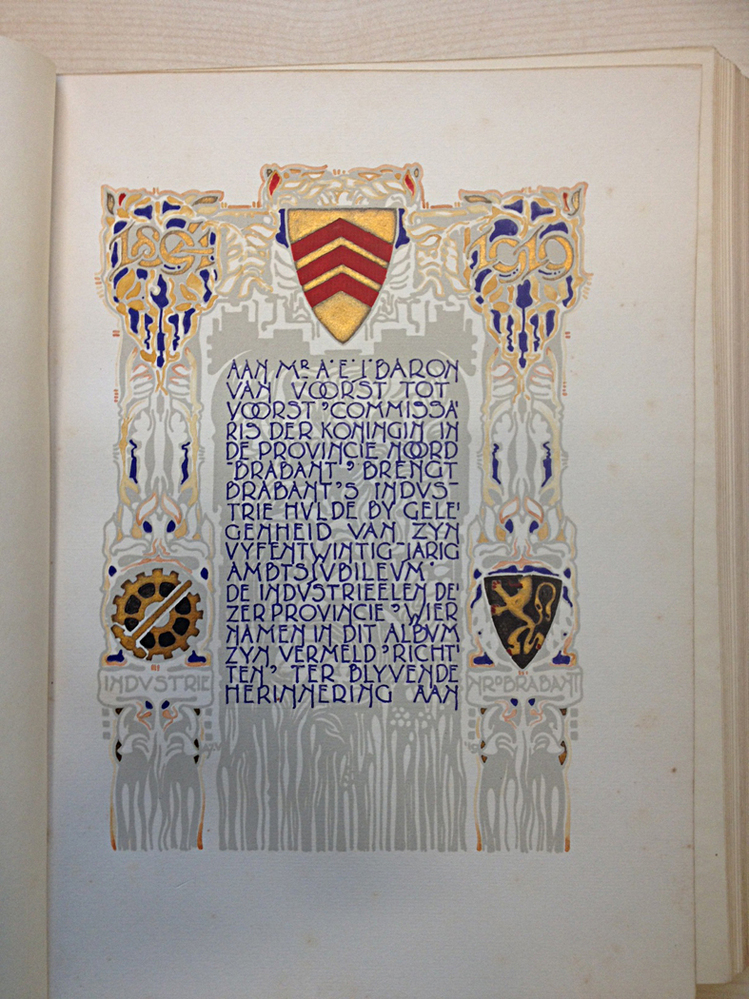 1894
1919
AAN MR. A. E. J. BARON
VAN VOORST TOT
VOORST, COMMISSA-
RIS DER KONINGIN IN
DE PROVINCIE NOORD
-BRABANT, BRENGT
BRABANT'S INDVS-
TRIE HVLDE BY GELE-
GENHEID VAN ZYN
VYFENTWINTIG-JARIG
AMBTSJVBILEVM.
DE INDVSTRIEELEN DE-
ZER PROVINCIE, WIER
NAMEN IN DIT ALBVM
ZYN VERMELD, RICHT-
TEN, TER BLYVENDE
HERINNERING AAN
INDVSTRIE
NRD BRABANT